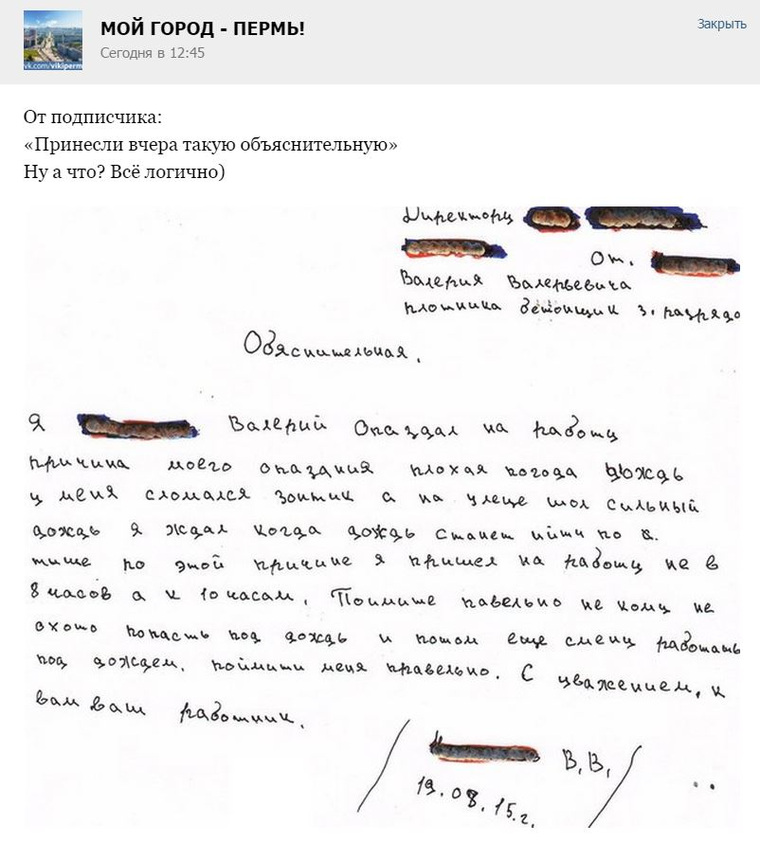 МОЙ ГОРОД - ПЕРМЬ!
Закрыть
Сегодня в 12:45
vk.com/vikiperm
От подписчика:
«Принесли вчера такую объяснительную»
Ну а что? Всё логично)
Директору
От.
Валерия Валерьевича
плотника бетонщик 3. разрядо
Обяснительная.
Я Валерий Опаздал на работу
причина моего опаздания плохая погода дождь
у меня сломался зонтик а на улеце шол сильный
дождь я ждал когда дождь станет ийти по
тише по этой причине я пришел на работу не в
8 часов а к 10 часам. Поимите павельно не кому не
охото попасть под дождь и потом еще смену работать
под дождем. поймити меня правельно. С уважением, к
вам ваш работник.
В.В.
19.08.15.г.